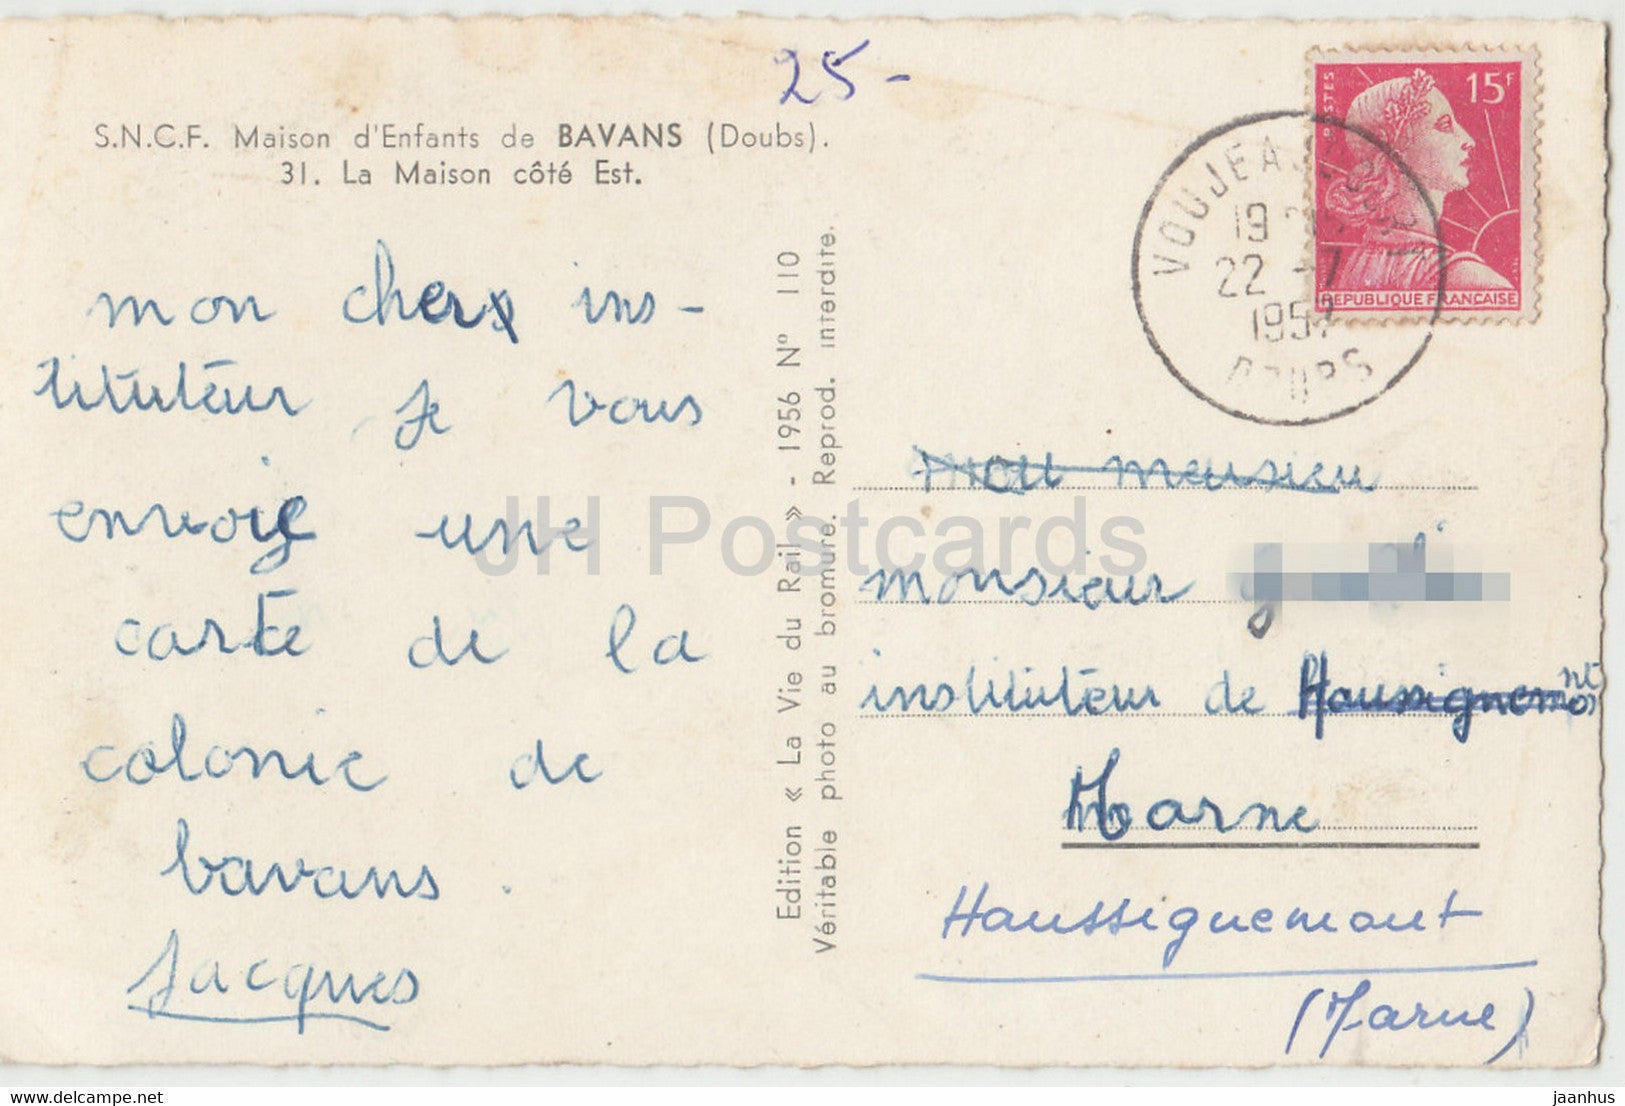 25-
S.N.C.F. Maison d'Enfants de BAVANS (Doubs).
31. La Maison côté Est.
mon cher ins-
tituteur je vous
envoie une
carte de la
colonie de
bavans.
Jacques
Edition « La Vie du Rail » - 1956 N° 110
Véritable photo au bromure. Reprod. interdite.
POSTES
15F
REPUBLIQUE FRANÇAISE
VOUJEAUCOURT
19
22 -7
1957
DOUBS
mon
monsieur
instituteur de Haussignemont
Marne
Haussignemont
(Marne)
JH Postcards
jaanhus
www.delcampe.net